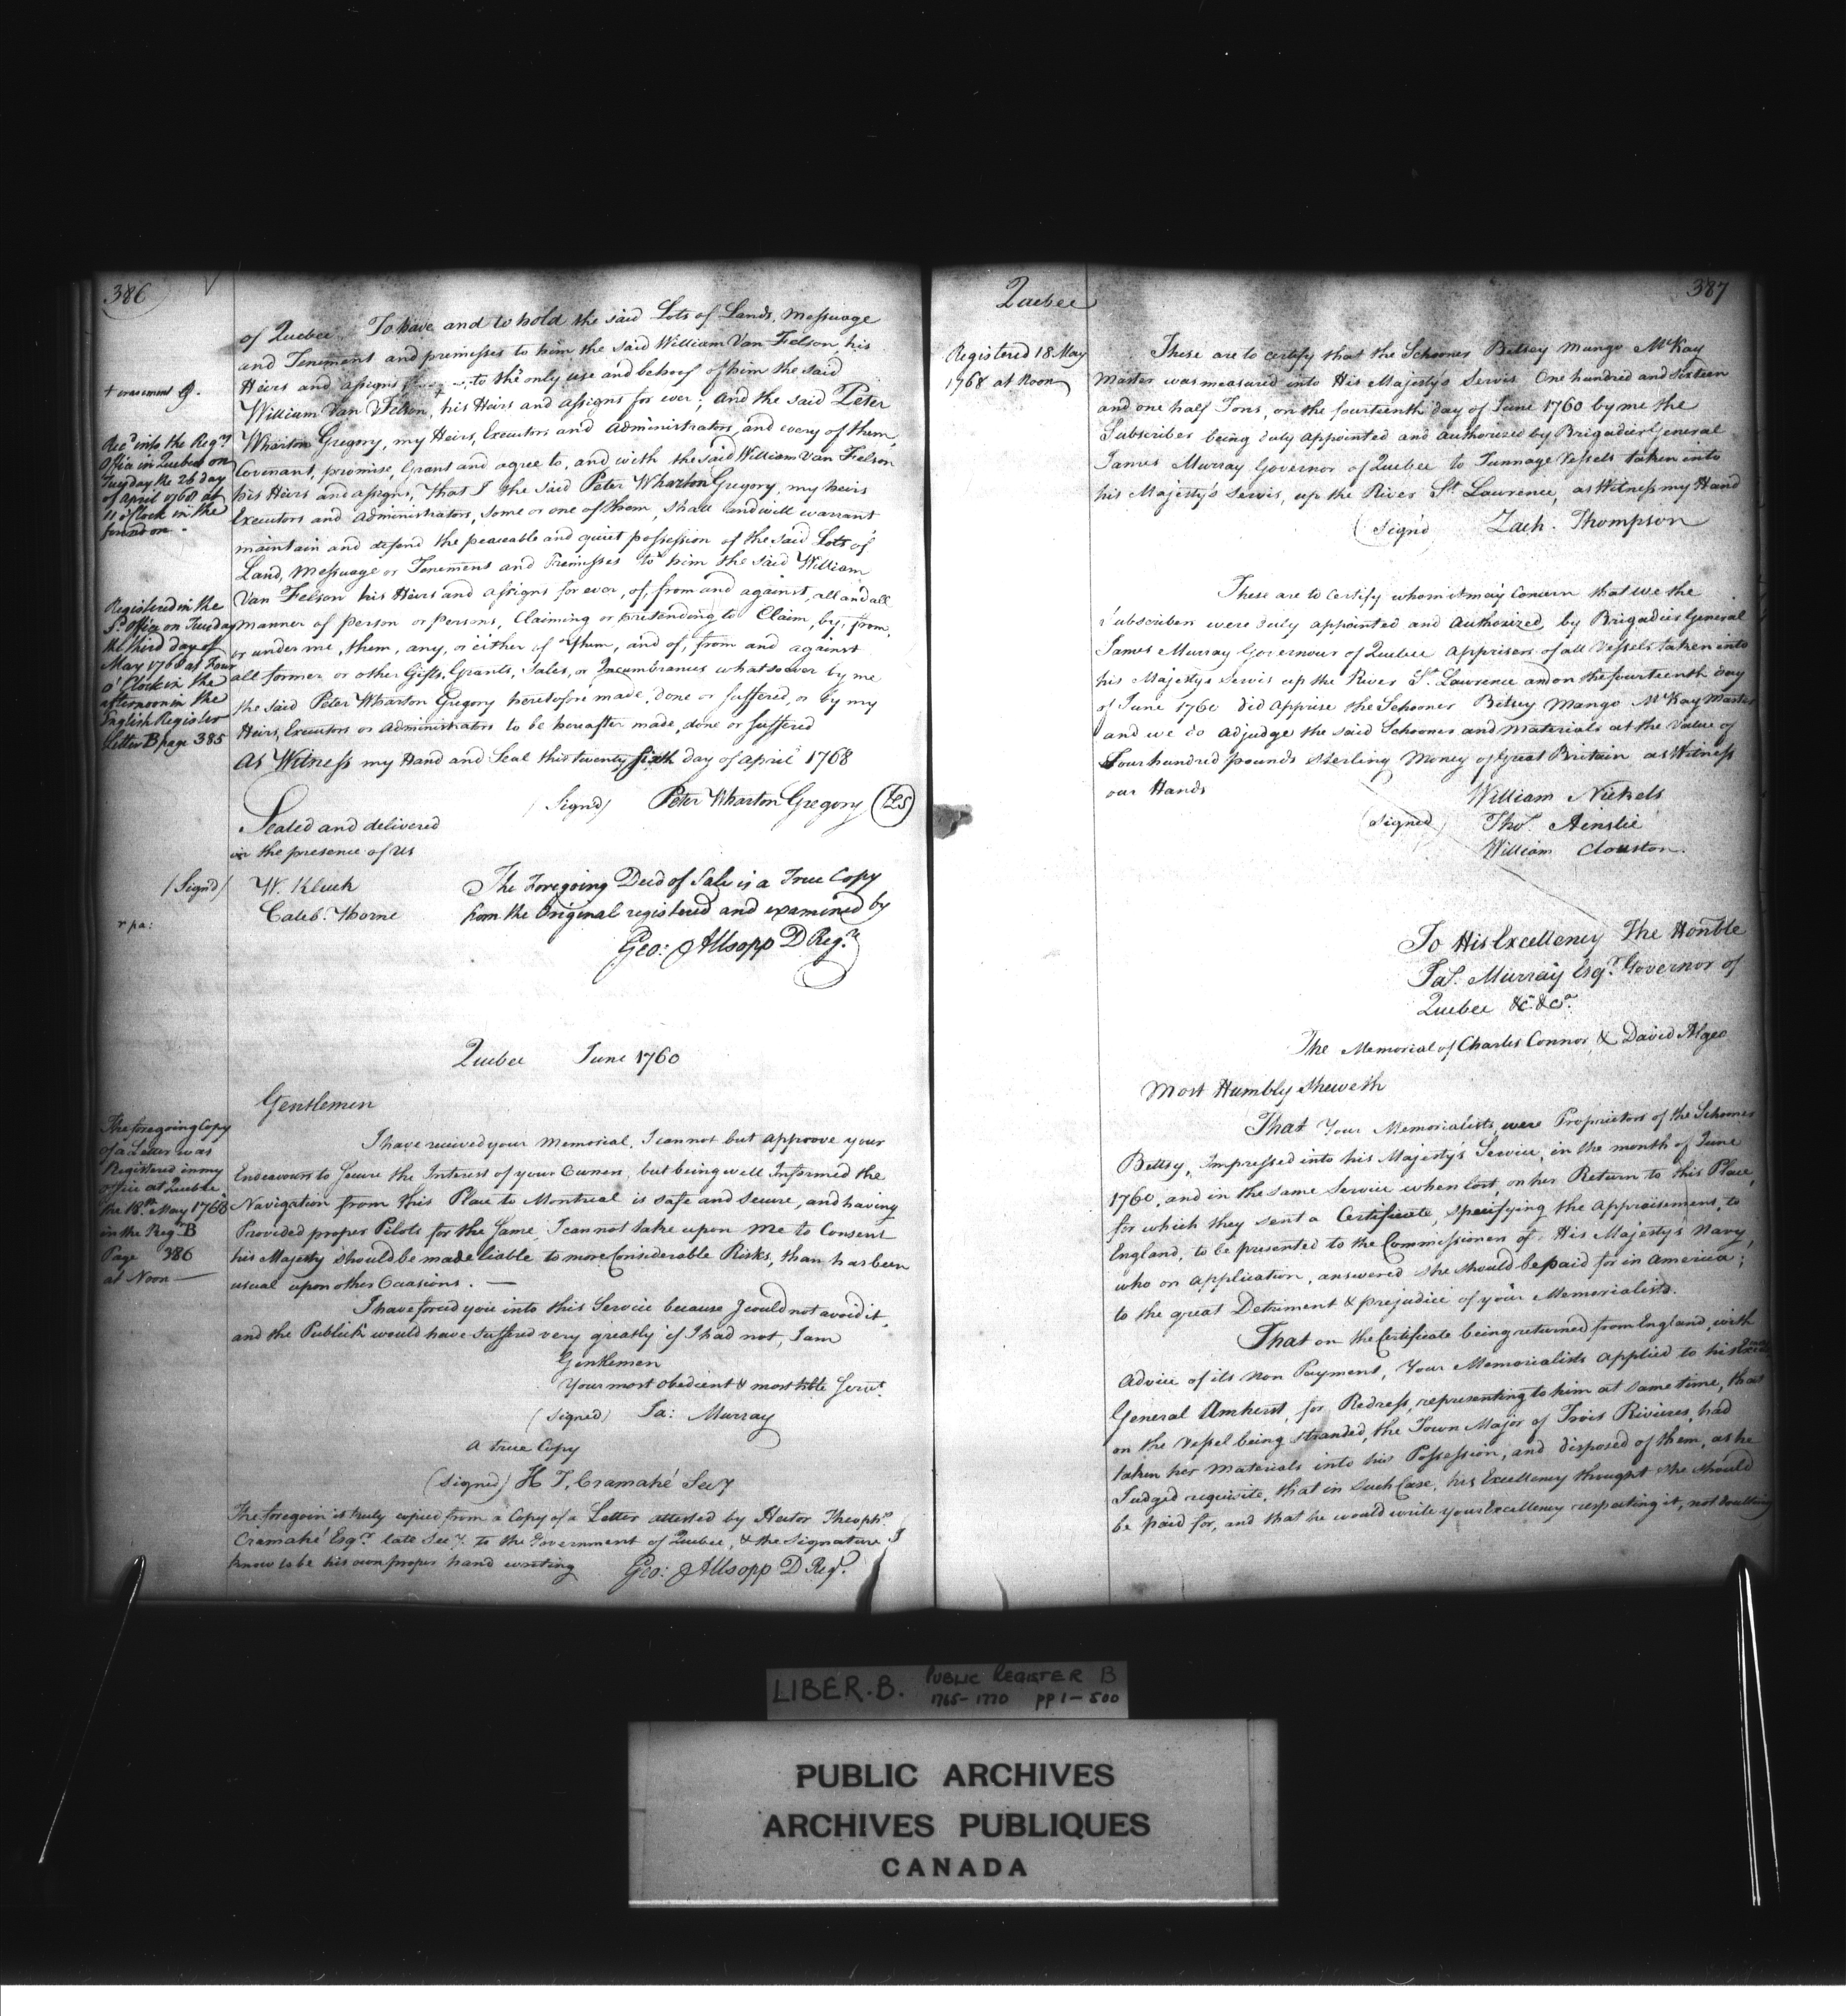 386
of Quebec. To have and to hold the said Lots of Lands, Messuage
and Tenement and premisses to him the said William Van Felson, his
Heirs and assigns to the only use and behoof of him the said
William Van Felson, + his Heirs and assigns for ever; and the said Peter
Wharton Gregory, my Heirs, Executors and Administrators, and every of them,
Covenant, promise, Grant and agree to, and with the said William Van Felson
his Heirs and assigns, That I the said Peter Wharton Gregory, my heirs
Executors and Administrators, some or one of them, shall and will warrant
maintain and defend the peaceable and quiet possession of the said Lots of
Land, Messuage or Tenement and Premisses to him the said William
Van Felson his Heirs and assigns for ever, of, from and against, all and all
manner of person or persons, Claiming or pretending to Claim, by, from,
or under me, them, any, or either of them, and of, from and against
all former or other Gifts, Grants, Sales, or Incumbrances whatsoever by me
the said Peter Wharton Gregory heretofore made, done or suffered, or by my
Heirs, Executors or Administrators to be hereafter made, done or suffered
As Witness my Hand and Seal this twenty sixth day of April 1768
(Signd) Peter Wharton Gregory (LS)
Sealed and delivered
in the presence of us
(Signd) W. Kluck
Caleb. Thorne
The Foregoing Deed of Sale is a True Copy
from the Original registered and examined by
Geo: Allsopp D Regr.
+ erasement G.
Recd into the Regrs
Office in Quebec on
Tuesday the 26 day
of April 1768 at
11 o'Clock in the
forenoon.
Registered in the
Sd. Office on Tuesday
the third day of
May 1768 at Four
o'Clock in the
afternoon in the
English Register
Letter B page 385
r pa:
Quebec June 1760
Gentlemen
I have received your Memorial. I cannot but approove your
Endeavours to secure the Interest of your Owners, but being well Informed the
Navigation from this Place to Montreal is safe and secure, and having
Provided proper Pilots for the same, I cannot take upon me to Consent
his Majesty should be made liable to more Considerable Risks, than has been
usual upon other Occasions. —
I have forced you into this Service because I could not avoid it,
and the Publick would have suffered very greatly if I had not, I am
Gentlemen
Your most obedient & most hble Servt.
(Signed) Ja: Murray
A true Copy
(Signed) H T. Cramahé Secy
The foregoin is truly copied from a Copy of a Letter attested by Hector Theophs.
Cramahé Esqr. late Secy. to the Government of Quebec, & the Signature I
know to be his own proper hand writing
Geo: Allsopp D Regr.
The foregoing Copy
of a Letter was
Registered in my
office at Quebec
the 18th. May 1768
in the Regr. B
Page 386
at Noon —
387
Quebec
Registered 18 May
1768 at Noon
These are to Certify that the Schooner Betsey Mungo McKay
Master was measured into His Majesty's Servis One hundred and sixteen
and one half Tons, on the fourteenth day of June 1760 by me the
Subscriber being duly appointed and authorized by Brigadier General
James Murray Governor of Quebec to Tunnage Vessels taken into
his Majesty's Servis, up the River St. Lawrence, as Witness my Hand
(Signd Zach. Thompson
These are to Certify whom it may Concern that we the
Subscribers were duly appointed and authorized by Brigadier General
James Murray Governour of Quebec apprisers of all Vessels taken into
his Majestys Servis up the River St. Lawrence and on the fourteenth day
of June 1760 did Apprise the Schooner Betsey Mango McKay Master
and we do adjudge the said Schooner and Materials at the Value of
Four hundred pounds Sterling Money of Great Britain as Witness
our Hands
(Signed) William Nickels
Thos. Ainslie
William Clouston.
To His Excellency The Honble
Jas. Murray Esqr. Governor of
Quebec &c. &ca.
The Memorial of Charles Connor & David Algeo
Most Humbly Sheweth
That Your Memorialists, were Proprietors of the Schooner
Bettsy, Impressed into his Majesty's Service, in the month of June
1760, and in the same Service when lost, on her Return to this Place,
for which they sent a Certificate, specifying the Appraisement, to
England, to be presented to the Commissioners of His Majesty's Navy,
who on application, answered she should be paid for in America;
to the great Detriment & prejudice of your Memorialists.
That on the Certificate being returned from England, with
Advice of its Non Payment, Your Memorialists applied to his
General Amherst, for Redress, representing to him at same time, that
on the Vessel being stranded, the Town Major of Trois Rivieres, had
taken her Materials into his Possession, and disposed of them, as he
Judged requisite, that in such Case, his Excellency thought she should
be paid for, and that he would write your Excellency respecting it, not doubting
LIBER. B. PUBLIC REGISTER B
1765-1770 pp 1-500
PUBLIC ARCHIVES
ARCHIVES PUBLIQUES
CANADA